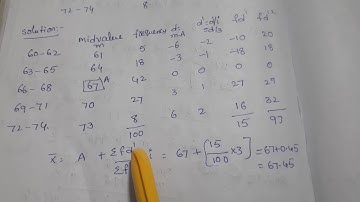 72-74 8
solution:-
midvalue m frequency f d= m-A d'=d/i =d/3 fd' fd'²
60-62 61 5 -6 -2 -10 20
63-65 64 18 -3 -1 -18 18
66-68 67 A 42 0 0 0 0
69-71 70 27 3 1 27 27
72-74. 73 8 6 2 16 32
100 15 97
X̄ = A + Σfd' i = 67 + [15 ×3] = 67+0.45
Σf 100 = 67.45